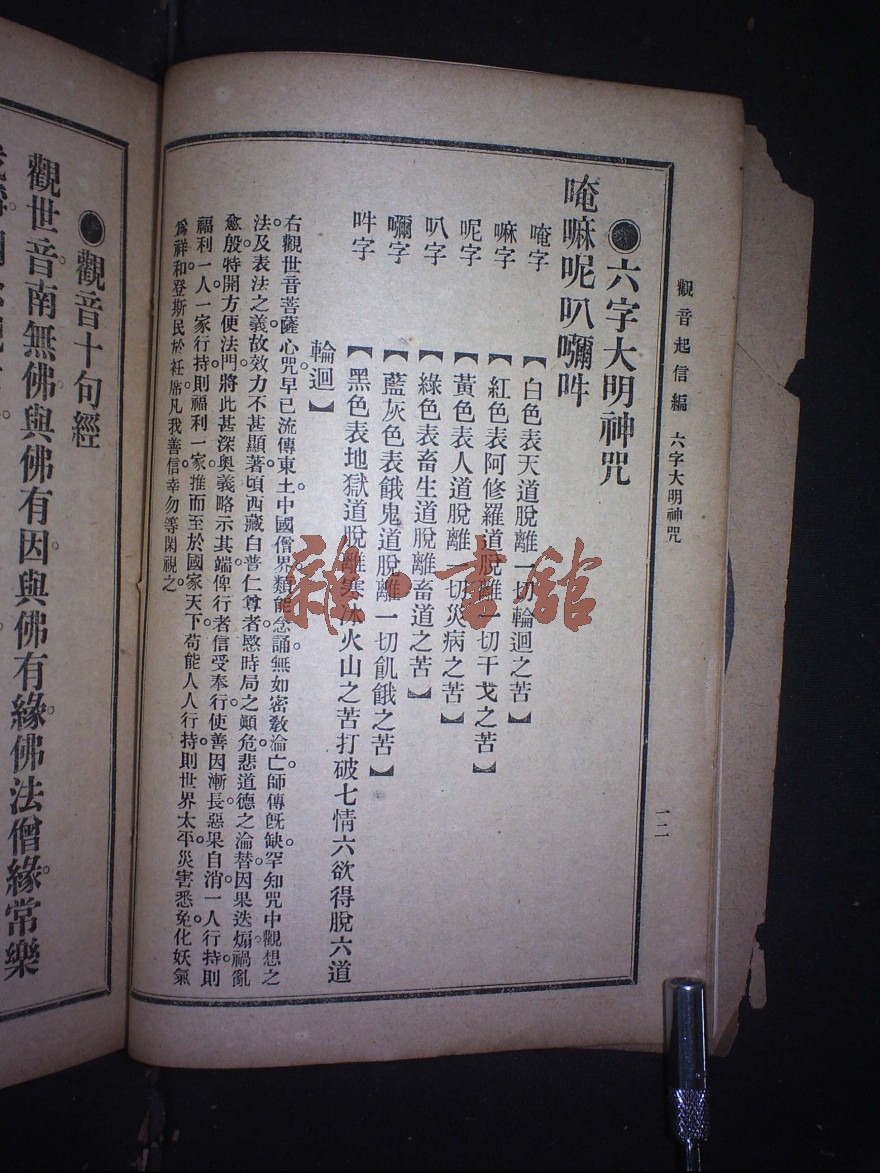 觀音起信編 六字大明神咒
一二
●六字大明神咒
唵嘛呢叭嚩吽
唵字【白色表天道脫離一切輪迴之苦】
嘛字【紅色表阿修羅道脫離一切干戈之苦】
呢字【黃色表人道脫離一切災病之苦】
叭字【綠色表畜生道脫離畜道之苦】
嚩字【藍灰色表餓鬼道脫離一切飢餓之苦】
吽字【黑色表地獄道脫離寒冰火山之苦打破七情六欲得脫六道
輪迴】
右觀世音菩薩心咒早已流傳東土中國僧界類能念誦。無如密教淪亡。師傳既缺。罕知咒中觀想之
法及表法之義。故效力不甚顯著。頃西藏白普仁尊者。愍時局之顛危。悲道德之淪替。因果迭煽。禍亂
愈殷。特開方便法門。將此甚深奧義略示其端。俾行者信受奉行。使善因漸長。惡果自消。一人行持則
福利一人。一家行持則福利一家。推而至於國家天下。苟能人人行持。則世界太平。災害悉免。化妖氣
為祥和。登斯民於衽席。凡我善信。幸勿等閑視之
●觀音十句經
觀世音。南無佛。與佛有因。與佛有緣。佛法僧緣。常樂
雜·書館